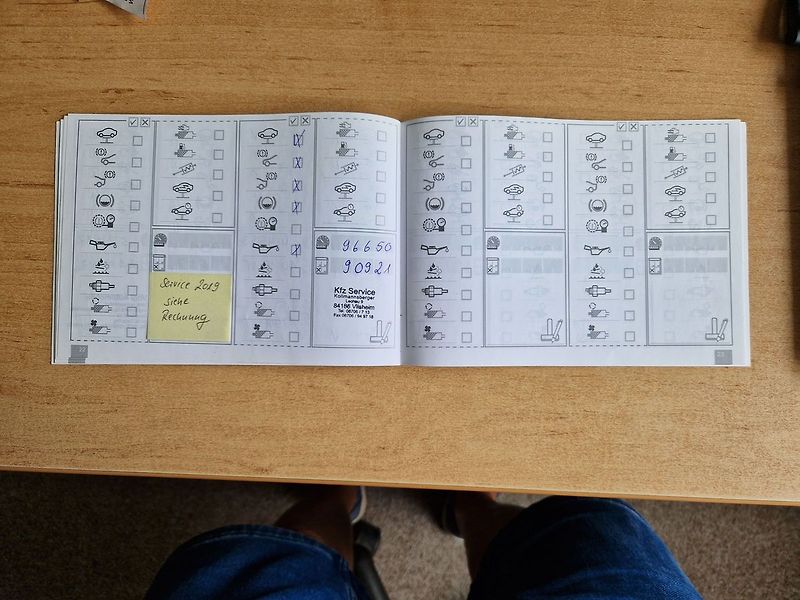 Service 2019
siehe
Rechnung
96650
90921
Kfz Service
Kollmannsberger
84186 Vilsheim
Tel. 08706 / 7 13
Fax 08706 / 94 97 18
22
23